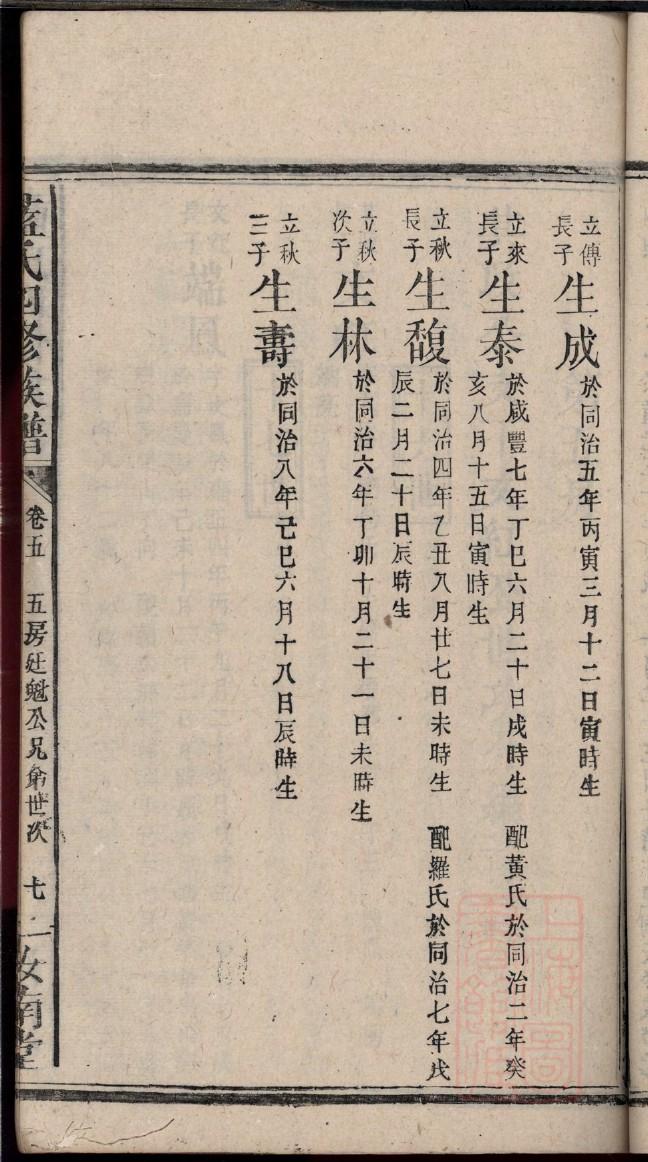 立傳長子 生成 於同治五年丙寅三月十二日寅時生
立來長子 生泰 於咸豐七年丁巳六月二十日戌時生 配黃氏於同治二年癸
亥八月十五日寅時生
立秋長子 生馥 於同治四年乙丑八月廿七日未時生 配羅氏於同治七年戊
辰二月二十日辰時生
立秋次子 生林 於同治六年丁卯十月二十一日未時生
立秋三子 生壽 於同治八年己巳六月十八日辰時生
藍氏四修族譜 卷五 五房廷魁公兄弟世次 七 汝南堂